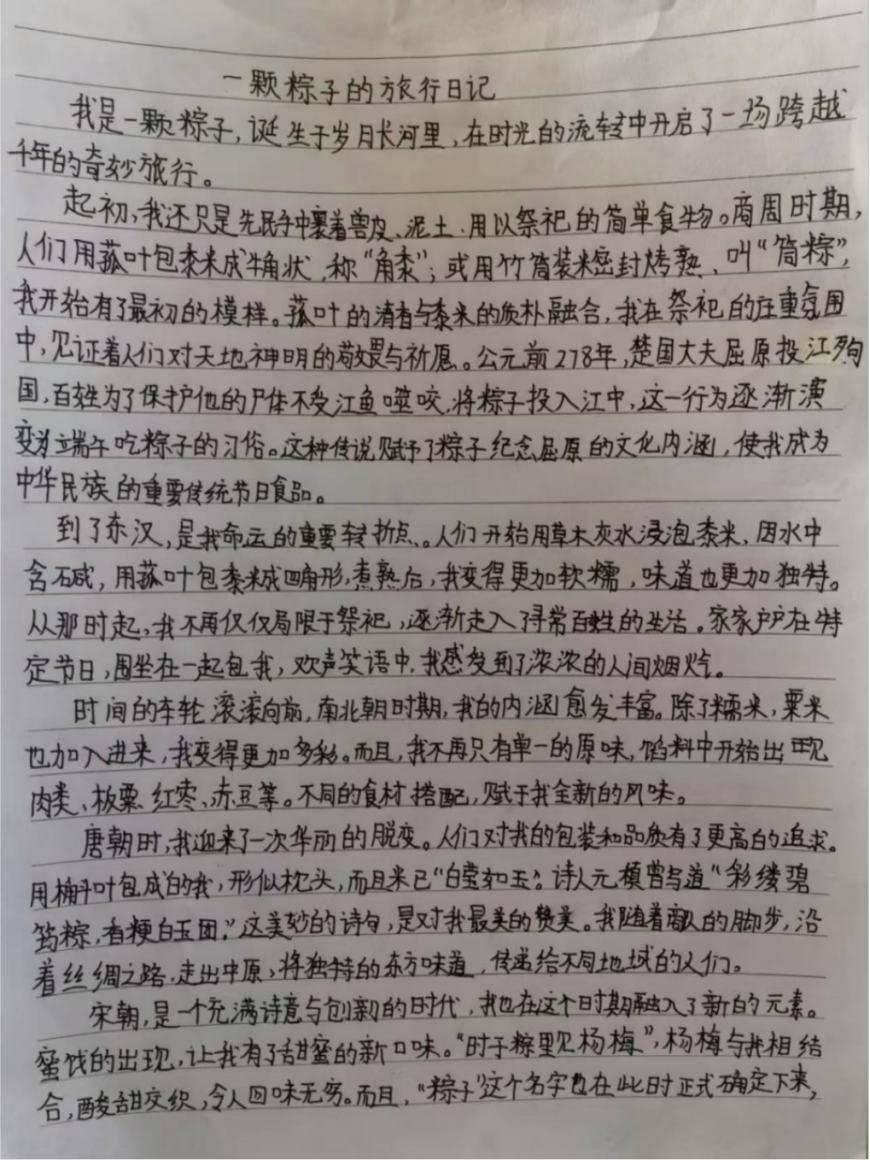 一颗粽子的旅行日记
我是一颗粽子,诞生于岁月长河里,在时光的流转中开启了一场跨越
千年的奇妙旅行。
起初,我还只是先民手中裹着兽皮、泥土、用以祭祀的简单食物。商周时期,
人们用菰叶包黍米成牛角状,称“角黍”;或用竹筒装米密封烤熟,叫“筒粽”,
我开始有了最初的模样。菰叶的清香与黍米的质朴融合,我在祭祀的庄重氛围
中,见证着人们对天地神明的敬畏与祈愿。公元前278年,楚国大夫屈原投江殉
国,百姓为了保护他的尸体不受江鱼噬咬,将粽子投入江中,这一行为逐渐演
变为端午吃粽子的习俗。这种传说赋予了粽子纪念屈原的文化内涵,使我成为
中华民族的重要传统节日食品。
到了东汉,是我命运的重要转折点。人们开始用草木灰水浸泡黍米,因水中
含碱,用菰叶包黍米成四角形,煮熟后,我变得更加软糯,味道也更加独特。
从那时起,我不再仅仅局限于祭祀,逐渐走入寻常百姓的生活。家家户户在特
定节日,围坐在一起包我,欢声笑语中,我感受到了浓浓的人间烟火气。
时间的车轮滚滚向前,南北朝时期,我的内涵愈发丰富。除了糯米,粟米
也加入进来,我变得更加多彩。而且,我不再只有单一的原味,馅料中开始出现
肉类、板栗、红枣、赤豆等。不同的食材搭配,赋于我全新的风味。
唐朝时,我迎来了一次华丽的脱变。人们对我的包装和品质有了更高的追求。
用槲叶包成的我,形似枕头,而且米已“白莹如玉”。诗人元稹曾写道“彩缕碧
筠粽,香粳白玉团。”这美妙的诗句,是对我最美的赞美。我随着商队的脚步,沿
着丝绸之路,走出中原,将独特的东方味道,传递给不同地域的人们。
宋朝,是一个充满诗意与创新的时代,我也在这个时期融入了新的元素。
蜜饯的出现,让我有了甜蜜的新口味。“时于粽里见杨梅”,杨梅与我相结
合,酸甜交织,令人回味无穷。而且,“粽子”这个名字也在此时正式确定下来,